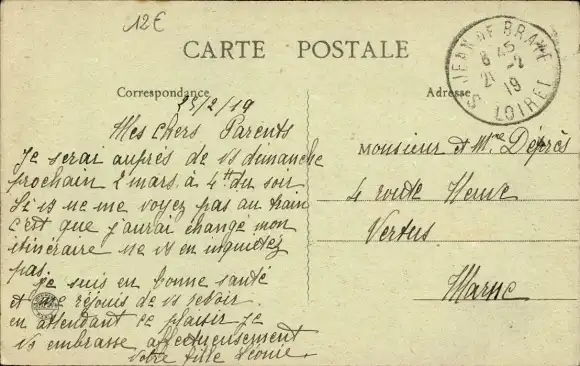 12€
CARTE POSTALE
Correspondance
Adresse
ST JEAN DE BRAYE
8 45
2 -2
19
LOIRET
25/2/19
Mes chers Parents
Je serai auprès de vs dimanche
prochain 2 mars à 4h du soir
Si vs ne me voyez pas au train
c'est que j'aurai changé mon
itinéraire ne vs en inquiétez
pas.
Je suis en bonne santé
et me réjouis de vs revoir.
en attendant ce plaisir je
vs embrasse affectueusement
Votre fille Léonie.
Monsieur et Mme Déprès
4 route Neuve
Vertus
Marne